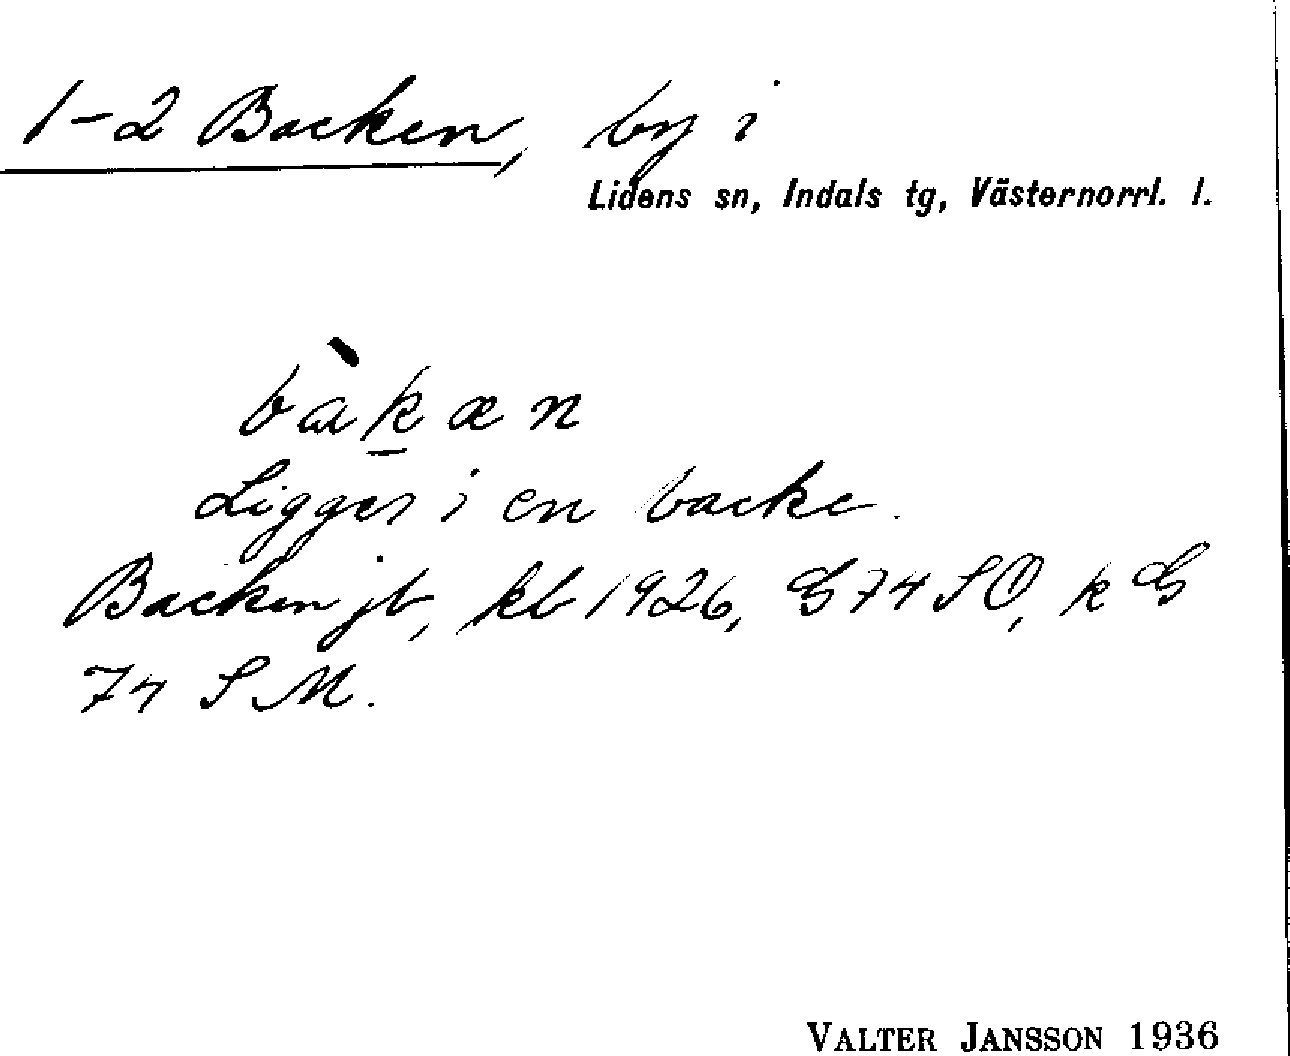 1-2 Backen, by i
Lidens sn, Indals tg, Västernorrl. l.
bàk̲æn
Ligger i en backe.
Backen jb, kb 1926, G 74 SO, k G
74 SM.
VALTER JANSSON 1936